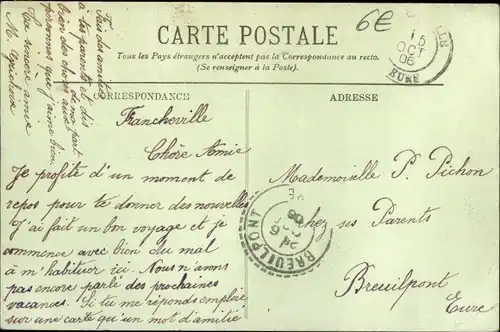 CARTE POSTALE
Tous les Pays étrangers n'acceptent pas la Correspondance au recto.
(Se renseigner à la Poste).
6€
15
OCT
06
EURE
CORRESPONDANCE
ADRESSE
Francheville
Chère Amie
Je profite d'un moment de
repos pour te donner des nouvelles
J'ai fait un bon voyage et je
commence avec bien du mal
à m'habituer ici. Nous n'avons
pas encore parlé des prochaines
vacances. Si tu me réponds emploie
sur une carte qu'un mot d'amitié
Fais des amitiés
à tes parents et dis
bien des choses aux
de ma part
personnes que j'aime bien
Ton sincère amie
M.
Mademoiselle P. Pichon
chez ses Parents
Breuilpont
Eure
BREUILPONT
06